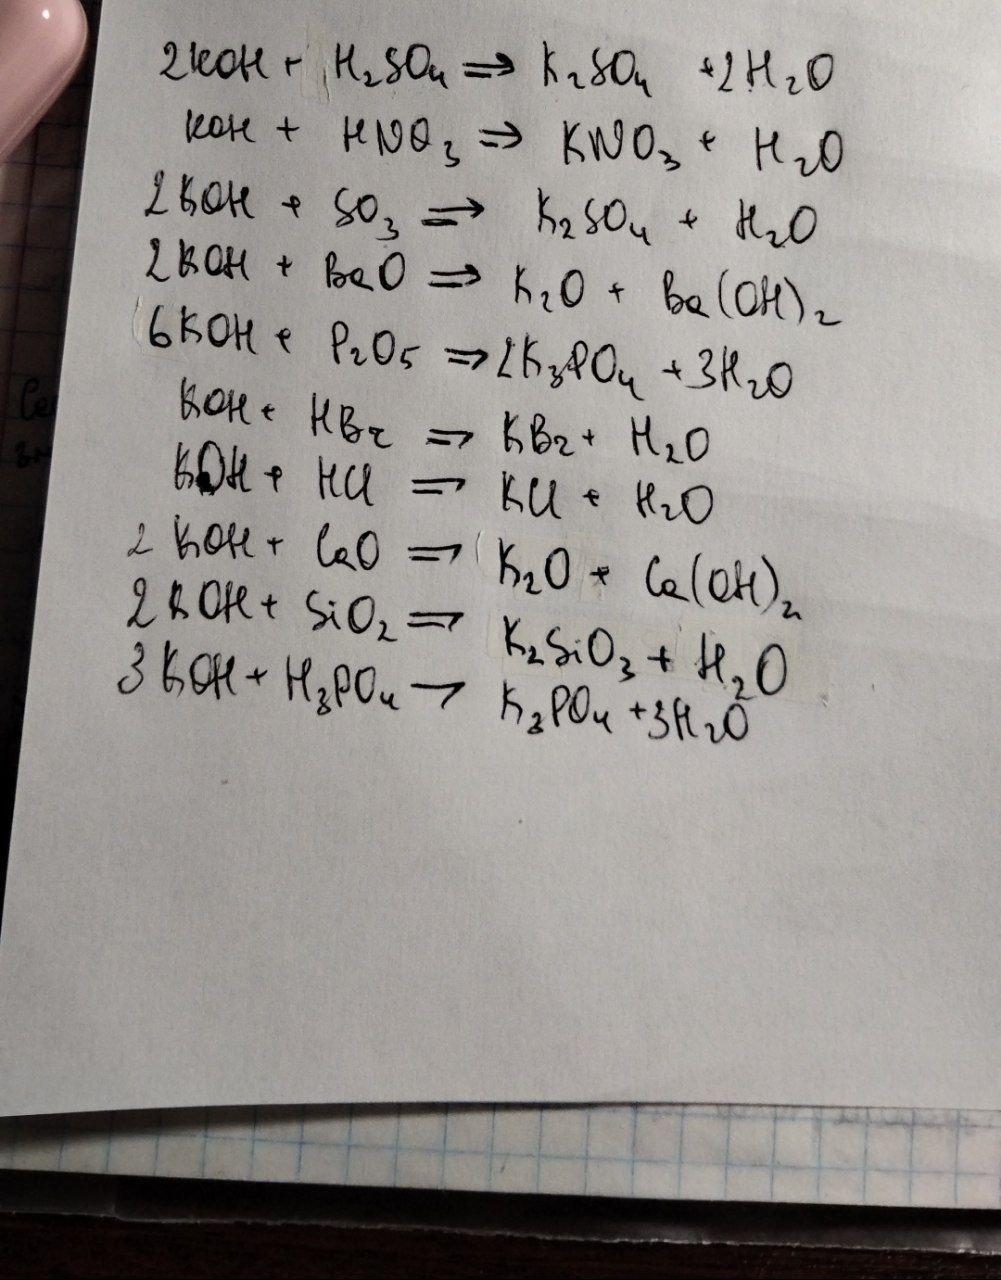 2KOH + H₂SO₄ ⇒ K₂SO₄ + 2H₂O
KOH + HNO₃ ⇒ KNO₃ + H₂O
2KOH + SO₃ ⇒ K₂SO₄ + H₂O
2KOH + BaO ⇒ K₂O + Ba(OH)₂
6KOH + P₂O₅ ⇒ 2K₃PO₄ + 3H₂O
KOH + HBr ⇒ KBr + H₂O
KOH + HCl ⇒ KCl + H₂O
2KOH + CaO ⇒ K₂O + Ca(OH)₂
2KOH + SiO₂ ⇒ K₂SiO₃ + H₂O
3KOH + H₃PO₄ → K₃PO₄ + 3H₂O